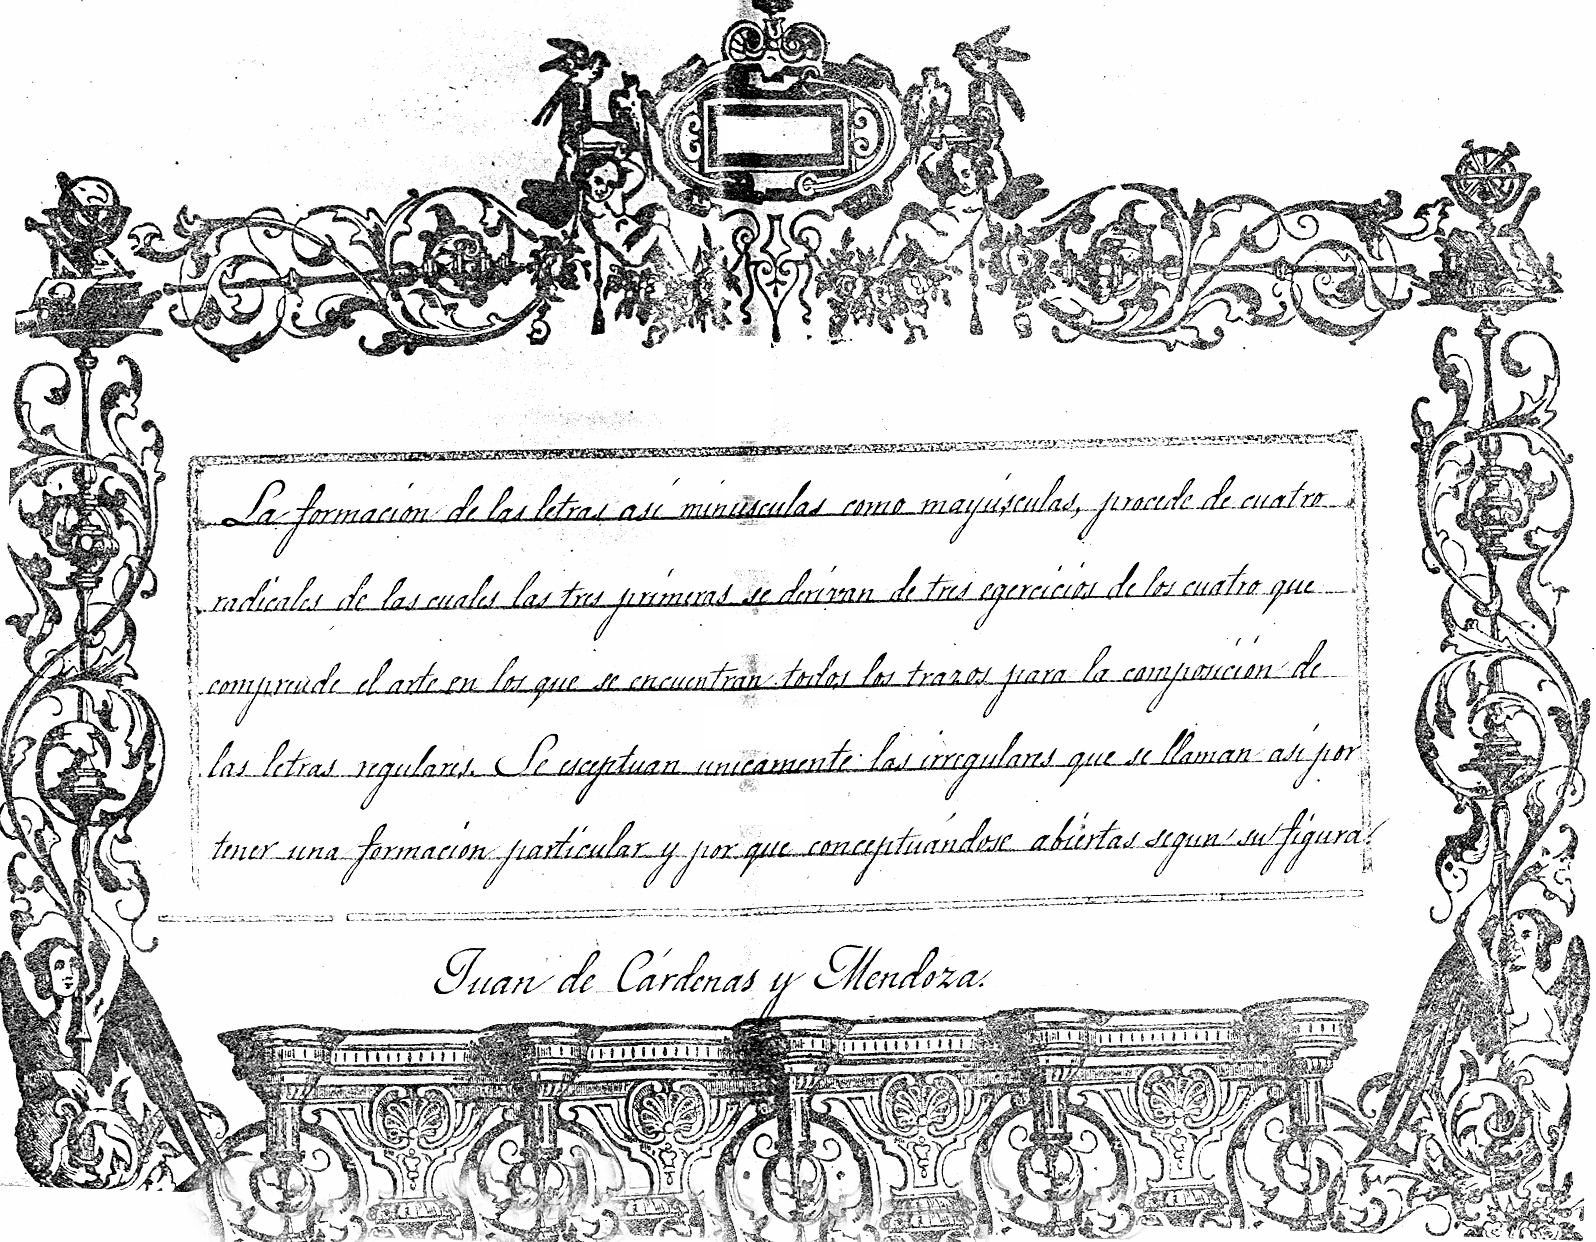 La formación de las letras así minúsculas como mayúsculas, procede de cuatro
radicales de las cuales las tres primeras se derivan de tres egercicios de los cuatro que
comprende el arte en los que se encuentran todos los trazos para la composición de
las letras regulares. Se esceptuan unicamente las irregulares que se llaman así por
tener una formación particular y por que conceptuándose abiertas segun su figura.
Juan de Cárdenas y Mendoza.